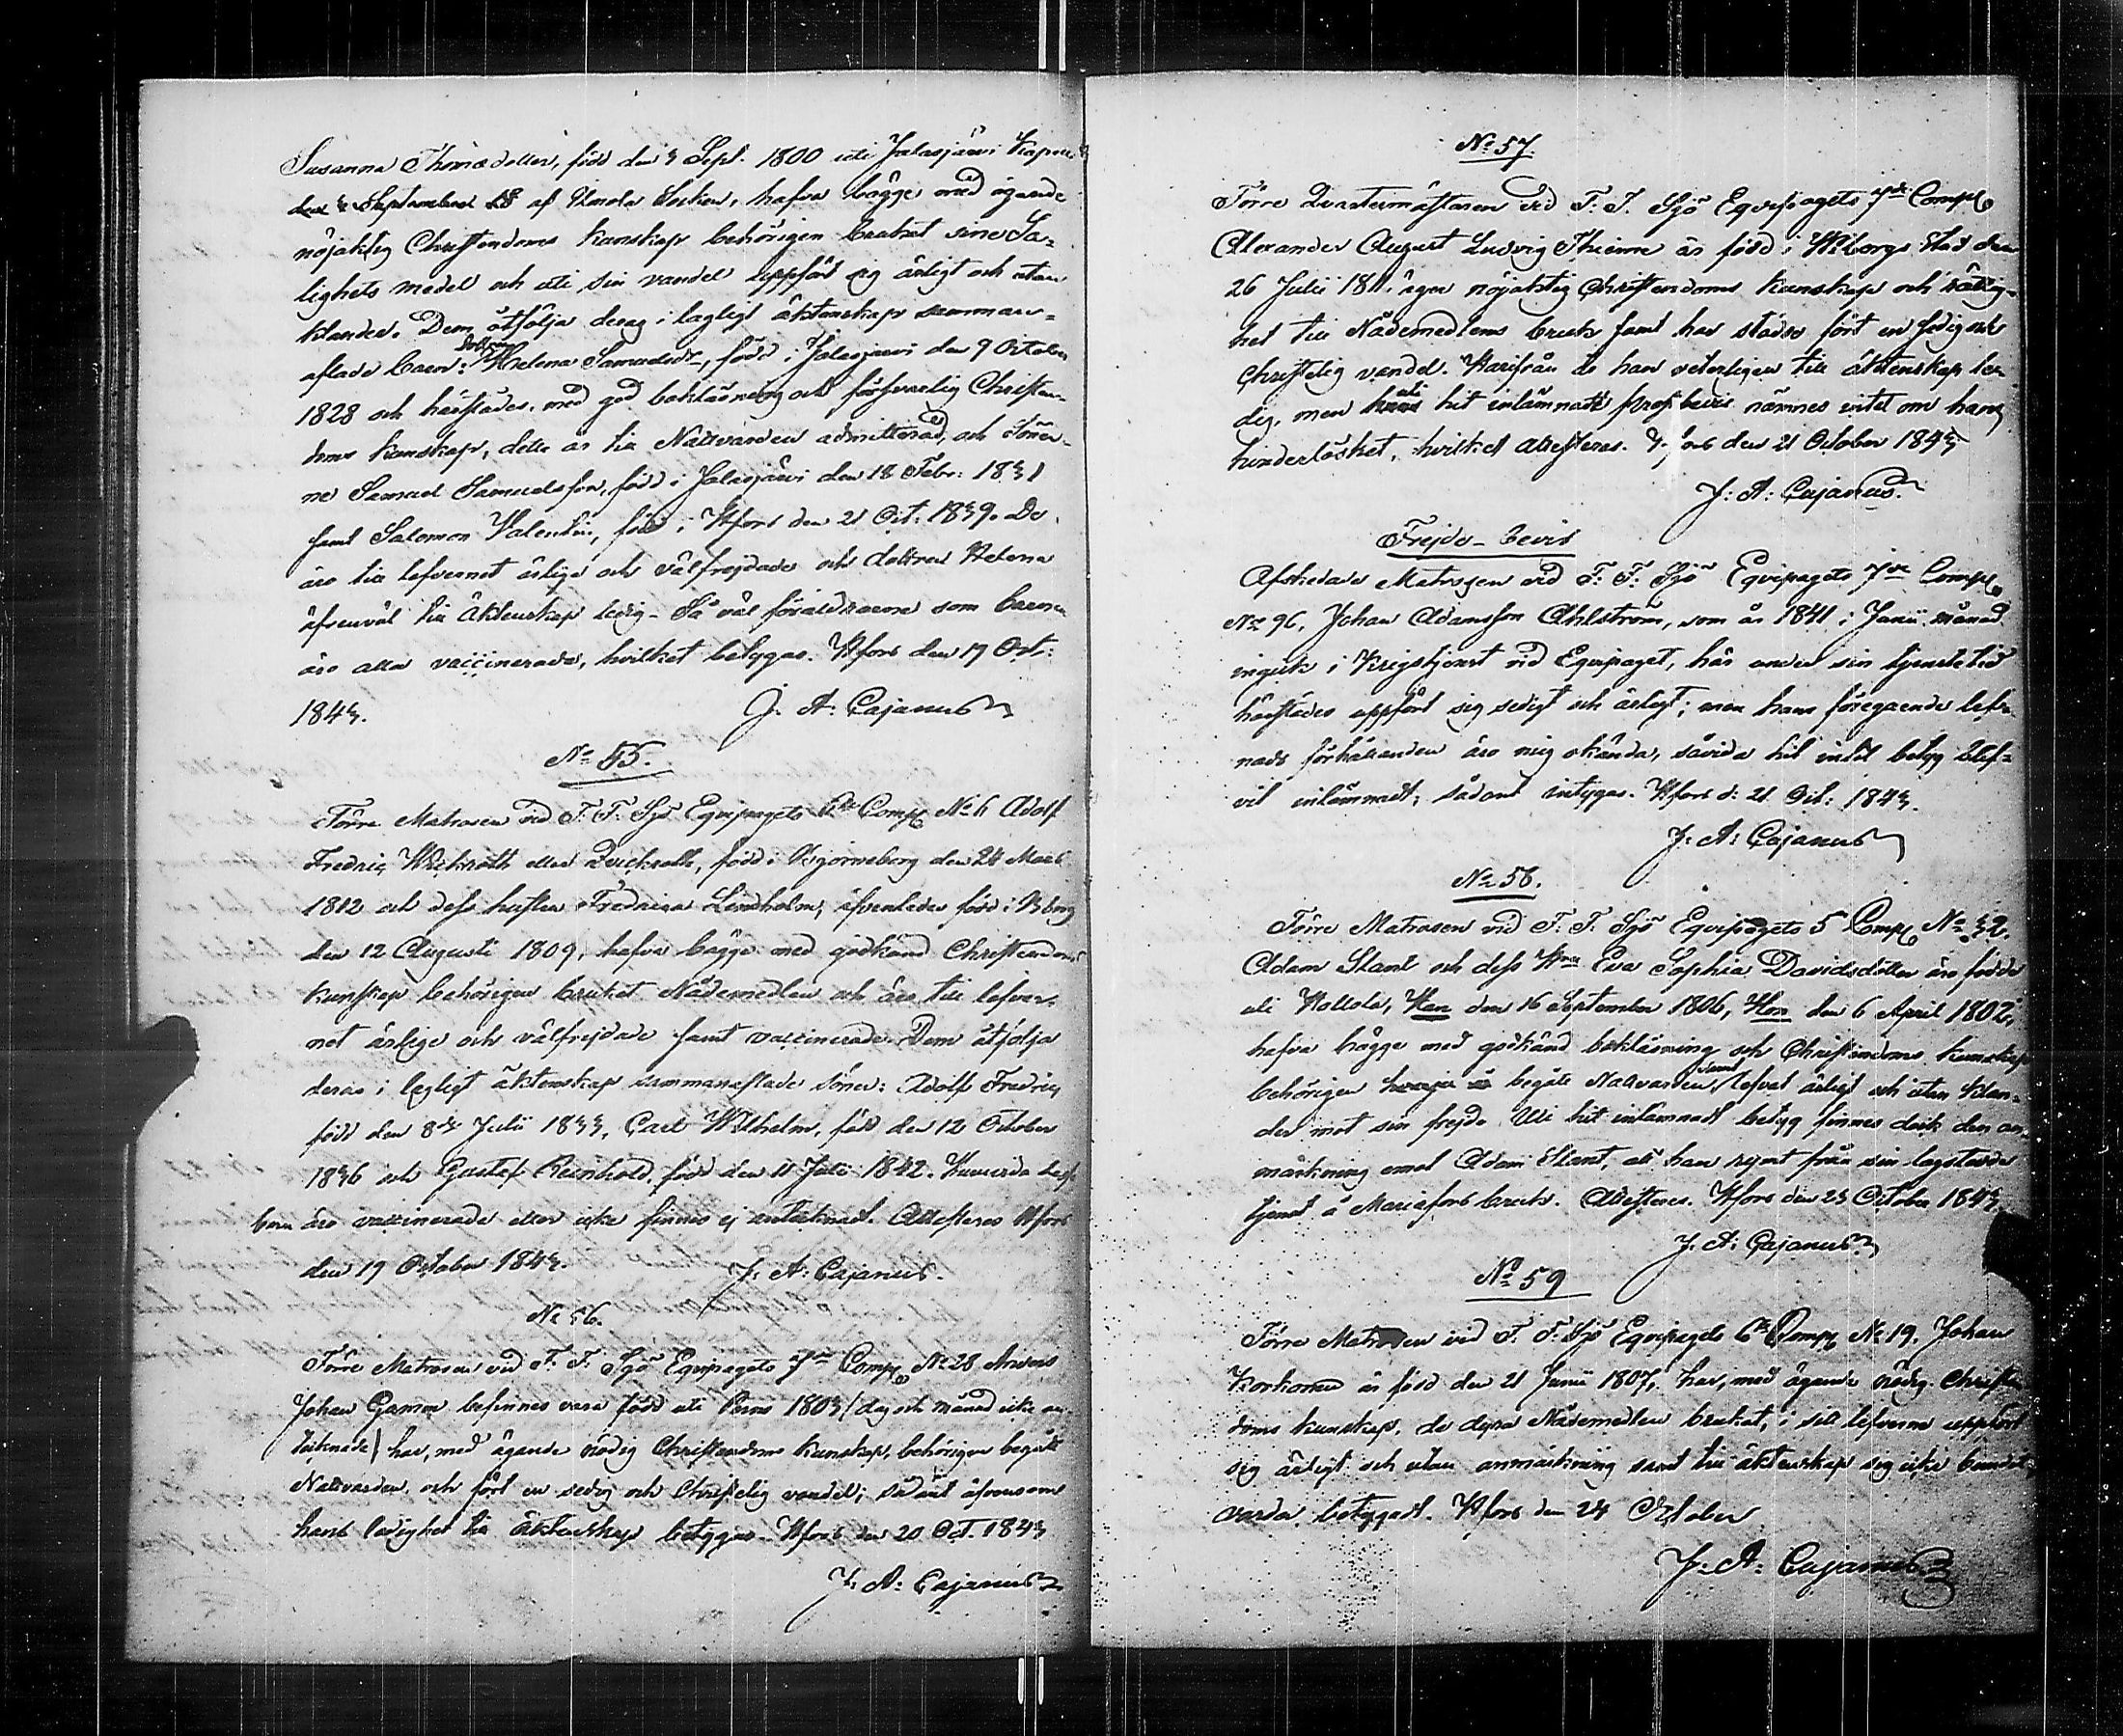 Susanna Thomædotter, född den 3 Sept. 1800 uti Jalasjärvi Capell
den 3 September 18 af Ilmola Socken, hafva bägge med ägande
nöjaktig Christendoms kunskap behörigen brukat sine Sa-
lighets medel och uti sin vandel uppfört sig ärligt och utan
klander. Dem åtfölja deras i lagligt äktenskap samman-
aflade barn: dottren Helena Samuelsdr, född i Jalasjärvi den 9 October
1828 och härstädes, med god bokläsning och försvarlig Christen-
doms kunskap, dels är till Nattvarden admitterad, och söner-
ne Samuel Samuelsson, född i Jalasjärvi den 18 Febr: 1831
samt Salomon Valentin, född i Hfors den 21 Oct: 1839. De
äro till lefvernet ärlige och välfrejdade och dottren Helena
äfvenväl till äktenskap ledig - Så väl föräldrarne som barnen
äro alla vaccinerade, hvilket betygas. Hfors den 19 Oct:
1843. J. A: Cajanus
No 55.
Förre Matrosen vid F. F. Sjö Equipagets 6te Comp No 6 Adolf
Fredric Wickroth eller Quickroth, född i Björneborg den 28 Mars
1812 och dess hustru Fredrica Lindholm, äfvenledes född i Bborg
den 12 Augusti 1809, hafva bägge med godkänd Christendoms
kunskap behörigen brukat Nådemedlen och äro till lefver-
net ärlige och välfrejdade samt vaccinerade. Dem åtfölja
deras i lagligt äktenskap sammanaflade söner: Adolf Fredric,
född den 8de Julii 1833, Carl Wilhelm, född den 12 October
1836 och Gustaf Reinhold, född den 11 Julii 1842. Huruvida dess
barn äro vaccinerade eller icke finnes ej antecknadt. Attesteras Hfors
den 19 October 1843. J. A: Cajanus.
No 56.
Förre Matrosen vid F. F. Sjö Equipagets 7de Comp No 28 Anders
Johan Gamm befinnes vara född uti Perno 1803 (dag och månad icke an-
tecknade) har, med ägande nödig Christendoms kunskap, behörigen begått
Nattvarden, och fört en sedig och Christelig vandel; sådant äfvensom
hans ledighet till äktenskap betygas. Hfors den 20 Oct. 1843
J. A: Cajanus
No 57.
Förre Quartermästaren vid F. F. Sjö Equipagets 7de Comp
Alexander August Ludvig Thieme är född i Wiborgs Stad den
26 Julii 1811. äger nöjaktig Christendoms kunskap och rättig-
het till Nådemedlens bruk samt har städse fört en sedig och
Christelig vandel. Härifrån är han veterligen till äktenskap le-
dig, men uti hit inlämnadt prestbevis nämnes intet om hans
hinderlöshet, hvilket attesteras. Hfors den 21 October 1843
J: A: Cajanus.
Frejde-bevis
Afskedade Matrosen vid F. F. Sjö Equipagets 7de Comp
No 96, Johan Adamsson Ahlström, som år 1841 i Junii månad
ingick i Krigstjenst vid Equipaget, har under sin tjenstetid
härstädes uppfört sig sedigt och ärligt; men hans föregående lef-
nads förhållanden äro mig okända, såvida hit intet betyg blif-
vit inlämnadt; sådant intygas. Hfors d: 21 Oct: 1843.
J: A: Cajanus
No 58.
Förre Matrosen vid F. F. Sjö Equipagets 5 Comp No 32.
Adam Slant och dess Hru Eva Sophia Davidsdotter äro födde
uti Hollola, Han den 16 September 1806, Hon den 6 April 1802,
hafva bägge med godkänd bokläsning och Christendoms kunskap
behörigen begått Nattvarden samt lefvat ärligt och utan klan-
der mot sin frejd. Uti hit inlämnadt betyg finnes dock den an-
märkning emot Adam Slant, att han rymt från sin lagstadda
tjenst å Mariefors bruk. Attesteras. Hfors den 23 October 1843.
J: A: Cajanus
No 59
Förre Matrosen vid F. F. Sjö Equipagets 6te Comp No 19, Johan
Korhonen är född den 21 Junii 1807, har, med ägande nödig Christen-
doms kunskap, de dyra Nådemedlen brukat, i sitt lefverne uppfört
sig ärligt och utan anmärkning samt till äktenskap sig icke bundit
varder betygadt. Hfors den 24 October
J: A: Cajanus